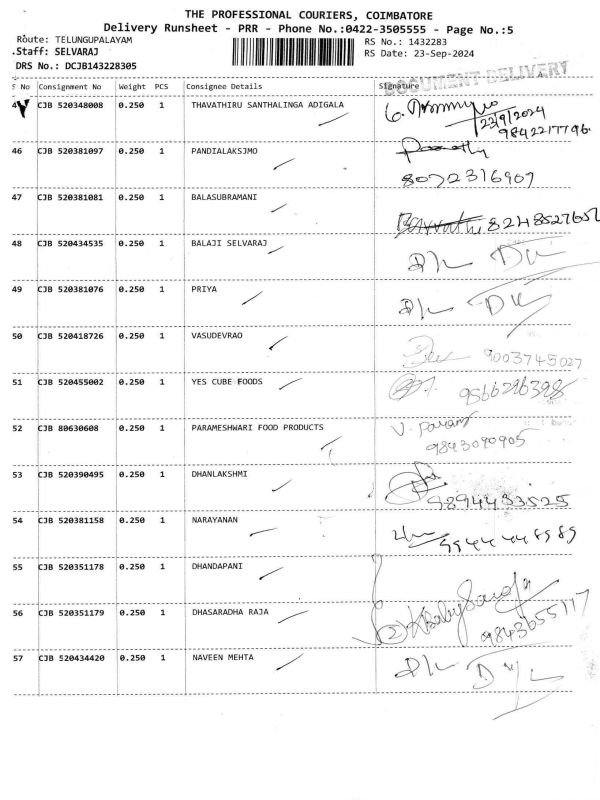 THE PROFESSIONAL COURIERS, COIMBATORE
Delivery Runsheet - PRR - Phone No.:0422-3505555 - Page No.:5
Route: TELUNGUPALAYAM
RS No.: 1432283
.Staff: SELVARAJ
RS Date: 23-Sep-2024
DRS No.: DCJB143228305
DOCUMENT DELIVERY
S No Consignment No Weight PCS Consignee Details Signature
CJB 520348008 0.250 1 THAVATHIRU SANTHALINGA ADIGALA
23/9/2024
9842217796
46 CJB 520381097 0.250 1 PANDIALAKSJMO
8072316907
47 CJB 520381081 0.250 1 BALASUBRAMANI
8248527657
48 CJB 520434535 0.250 1 BALAJI SELVARAJ
D/L
49 CJB 520381076 0.250 1 PRIYA
D/L
50 CJB 520418726 0.250 1 VASUDEVRAO
9003745027
51 CJB 520455002 0.250 1 YES CUBE FOODS
9566296398
52 CJB 80630608 0.250 1 PARAMESHWARI FOOD PRODUCTS
V. Param
9843090905
53 CJB 520390495 0.250 1 DHANLAKSHMI
9894433525
54 CJB 520381158 0.250 1 NARAYANAN
9944448989
55 CJB 520351178 0.250 1 DHANDAPANI
56 CJB 520351179 0.250 1 DHASARADHA RAJA
9843655117
57 CJB 520434420 0.250 1 NAVEEN MEHTA
D/L